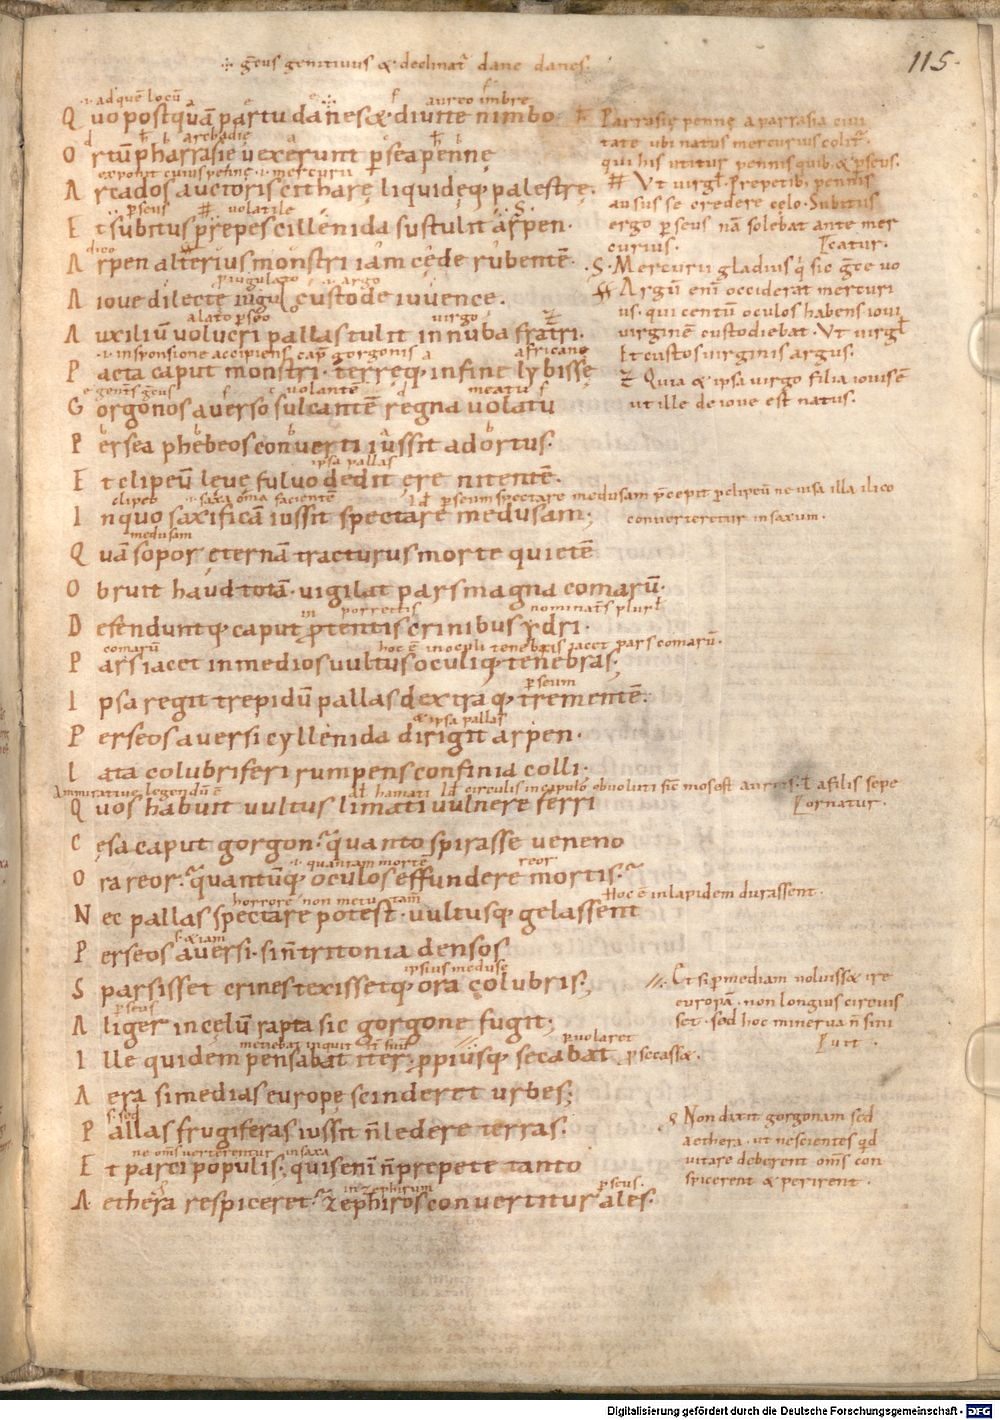 115
gr̄cus genitiuus & declinat̄ danę danes.
.i. ad quē locū aureo imbre
Quo postquā partu danes & diuite nimbo
arcadię
Ortū pharrasię uexerunt ꝑsea pennę
exponit cuius pennę .i. mercurii
Arcados auctoris citharę liquidęq; palestrę.
perseus volatile
Et subitus prepes cillenida sustulit arpen.
dico
Arpen alterius monstri iam cęde rubentē.
iugulato .i. argo
A ioue dilectę custode iuuencę.
alato ꝑseo virgo
Auxiliū uolucri pallas tulit innuba fratri.
.i. in sponsione accipiens cap̄ gorgonis africanę
Pacta caput monstri. terręq; in fine lybissę
volantē meatu
Gorgonos auerso sulcantē regna uolatu
Persea phębeos conuerti iussit ad ortus.
ipsa pallas
Et clipeū leue fuluo dedit ęre nitentē.
clipeo .i. saxa om̄a facientē ꝑseum spectare medusam p̄cepit ꝑ clipeū ne uisa illa ilico
In quo saxificā iussit spectare medusam;
conuerteretur in saxum.
medusam
Quā sopor eternā tracturus morte quietē
Obruit haud totā. uigilat pars magna comarū.
in porrectis nominat̄s plural̄
Defenduntq; caput ꝓtentis crinibus ydri.
comarū hoc ē in oculi tenebras iacet pars comarū.
Pars iacet in medios uultus oculiq; tenebras;
ꝑseum
Ipsa regit trepidū pallas dextraq; trementē.
& ipsa pallas
Perseos auersi cyllenida dirigit arpen.
Lata colubriferi rumpens confinia colli.
Ammiratiue legendū ē hamati circulis in capulo obuoluti sic̄ mos est aureis. l̄ a filis sepe
Quos habuit uultus limati uulnere ferri
ornatur.
Cęsa caput gorgon. quanto spirasse ueneno
.i. quantam mortē reor
Ora reor. quantūq; oculos effundere mortis.
horrore non metu Hoc ē in lapidem durassent.
Nec pallas spectare potest. uultusq; gelassent
& iam
Perseos auersi. sin̄ tritonia densos
ipsius medusę
Sparsisset crines texissetq; ora colubris;
perseus
Aliger in cęlū rapta sic gorgone fugit;
metiebat inquit uolaret
Ille quidem pensabat iter; ꝓpiusq; secabat ꝑ secass&.
Aera si medias europę scinderet urbes;
s. sed
Pallas frugiferas iussit n̄ ledere terras.
ne om̄s uerterentur in saxa
Et parci populis; quis enim n̄ prepete tanto
in zephirum perseus.
Aethera respiceret. zephiros conuertitur ales.
Parrasię pennę a parrasia ciui
tate ubi natus mercurius colit̄
qui his utitur pennis quib; & ꝑseus.
Vt uirgl̄. Prepetib; pennis
ausus se credere celo. Subitus
ergo ꝑseus nā solebat ante mer
curius.
S. Mercurii gladius
Argū eni occiderat mercuri
us. qui centū oculos habens ioui
uirginē custodiebat. Vt uirgl̄
Et custos uirginis argus.
Quia & ipsa uirgo filia iouis ē
ut ille de ioue est natus.
Et si ꝑ mediam noluiss& ire
europā. non longius circuis
set. sed hoc minerua n̄ sini
uit.
Non dixit gorgonam sed
aethera. ut nescientes qd̄
uitare deberent om̄s con
spicerent & perirent.
Digitalisierung gefördert durch die Deutsche Forschungsgemeinschaft - DFG